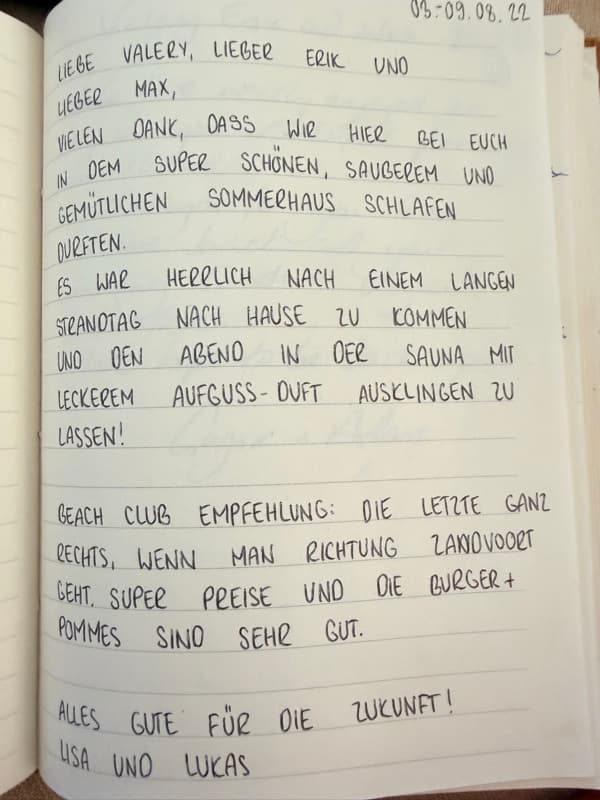 03.-09.08.22
LIEBE VALERY, LIEBER ERIK UND
LIEBER MAX,
VIELEN DANK, DASS WIR HIER BEI EUCH
IN DEM SUPER SCHÖNEN, SAUBEREM UND
GEMÜTLICHEN SOMMERHAUS SCHLAFEN
DURFTEN.
ES WAR HERRLICH NACH EINEM LANGEN
STRANDTAG NACH HAUSE ZU KOMMEN
UND DEN ABEND IN DER SAUNA MIT
LECKEREM AUFGUSS-DUFT AUSKLINGEN ZU
LASSEN!
BEACH CLUB EMPFEHLUNG: DIE LETZTE GANZ
RECHTS, WENN MAN RICHTUNG ZANDVOORT
GEHT. SUPER PREISE UND DIE BURGER +
POMMES SIND SEHR GUT.
ALLES GUTE FÜR DIE ZUKUNFT!
LISA UND LUKAS